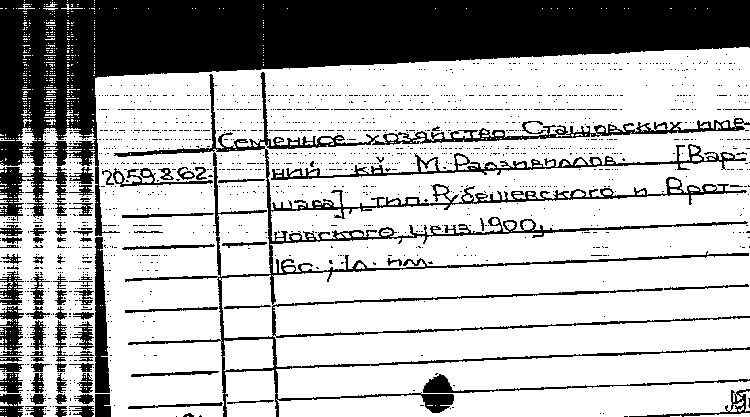 Семенное хозяйство Сташовских име-
20.59.8.62. ний кн. М. Радзивиллов. [Вар-
шава], тип. Рубешевского и Врот-
новского, ценз 1900,
16с.; 1л. пл.